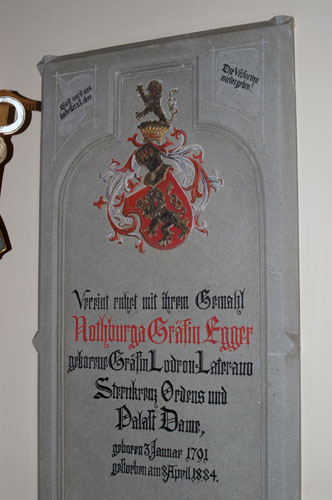 Gott wird uns
Die Verlornen
wiedergeben!
Vereint ruhet mit ihrem Gemahl
Nothburga Gräfin Egger
geborene Gräfin Lodron-Laterano
Sternkreuz Ordens und
Palast Dame,
geboren 3 Januar 1791
gestorben am 8 April 1884.